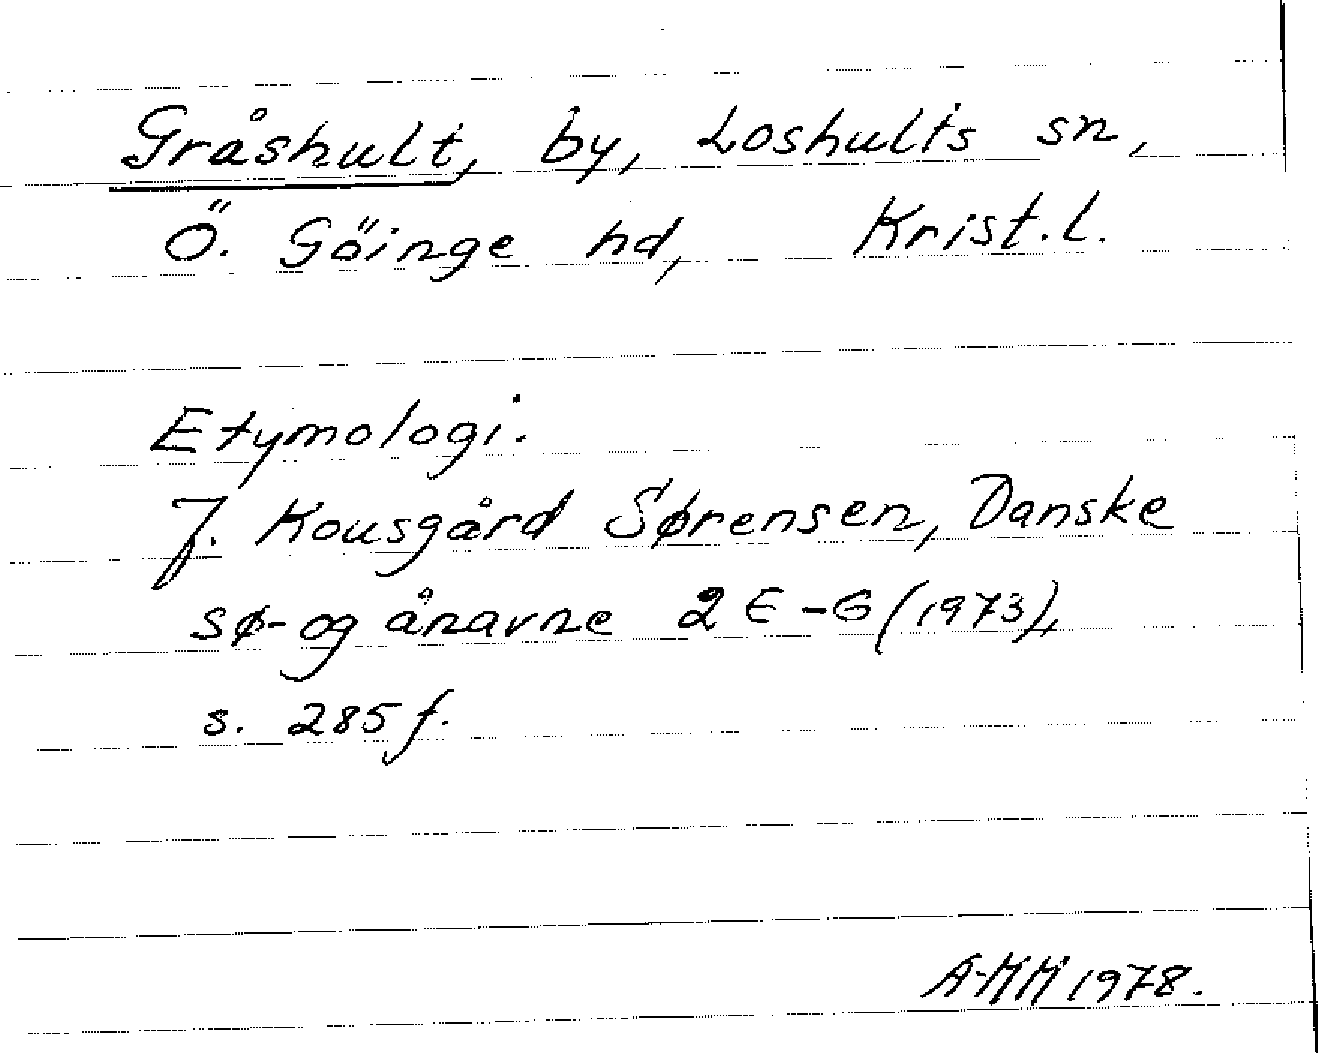 Gråshult, by, Loshults sn,
Ö. Göinge hd, Krist.l.
Etymologi.
J. Kousgård Sørensen, Danske
sø- og ånavne 2 E-G (1973),
s. 285 f.
A-MM 1978.